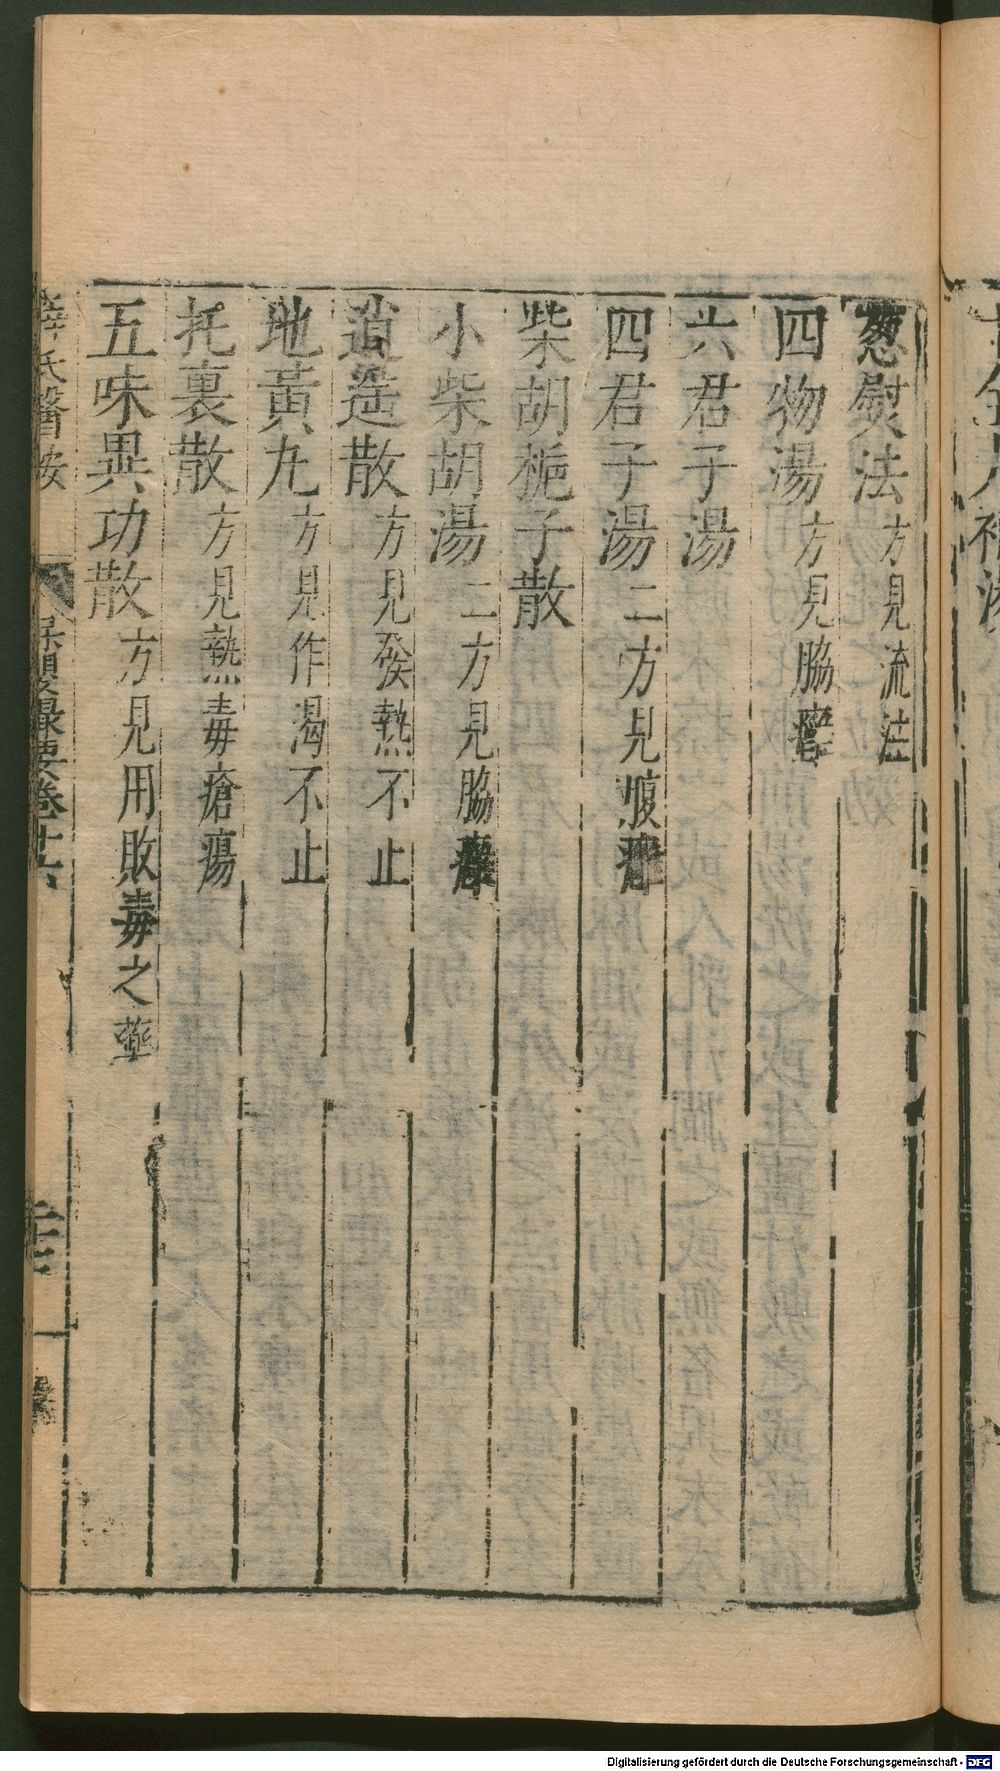 葱熨法方見流注
四物湯方見脇癰
六君子湯
四君子湯二方見腹癰
柴胡梔子散
小柴胡湯二方見脇癰
逍遥散方見發熱不止
地黃丸方見作渴不止
托裏散方見熱毒瘡瘍
五味異功散方見用敗毒之藥
薛氏醫按 保嬰撮要卷十六
Digitalisierung gefördert durch die Deutsche Forschungsgemeinschaft - DFG